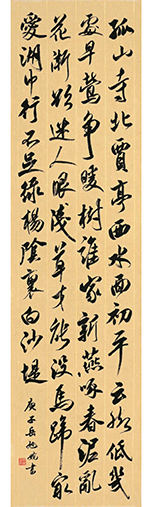 孤山寺北賈亭西水面初平云腳低幾
處早鶯争暖樹誰家新燕啄春泥亂
花漸欲迷人眼淺草才能没馬蹄最
愛湖东行不足綠楊陰裏白沙堤
庚子 書